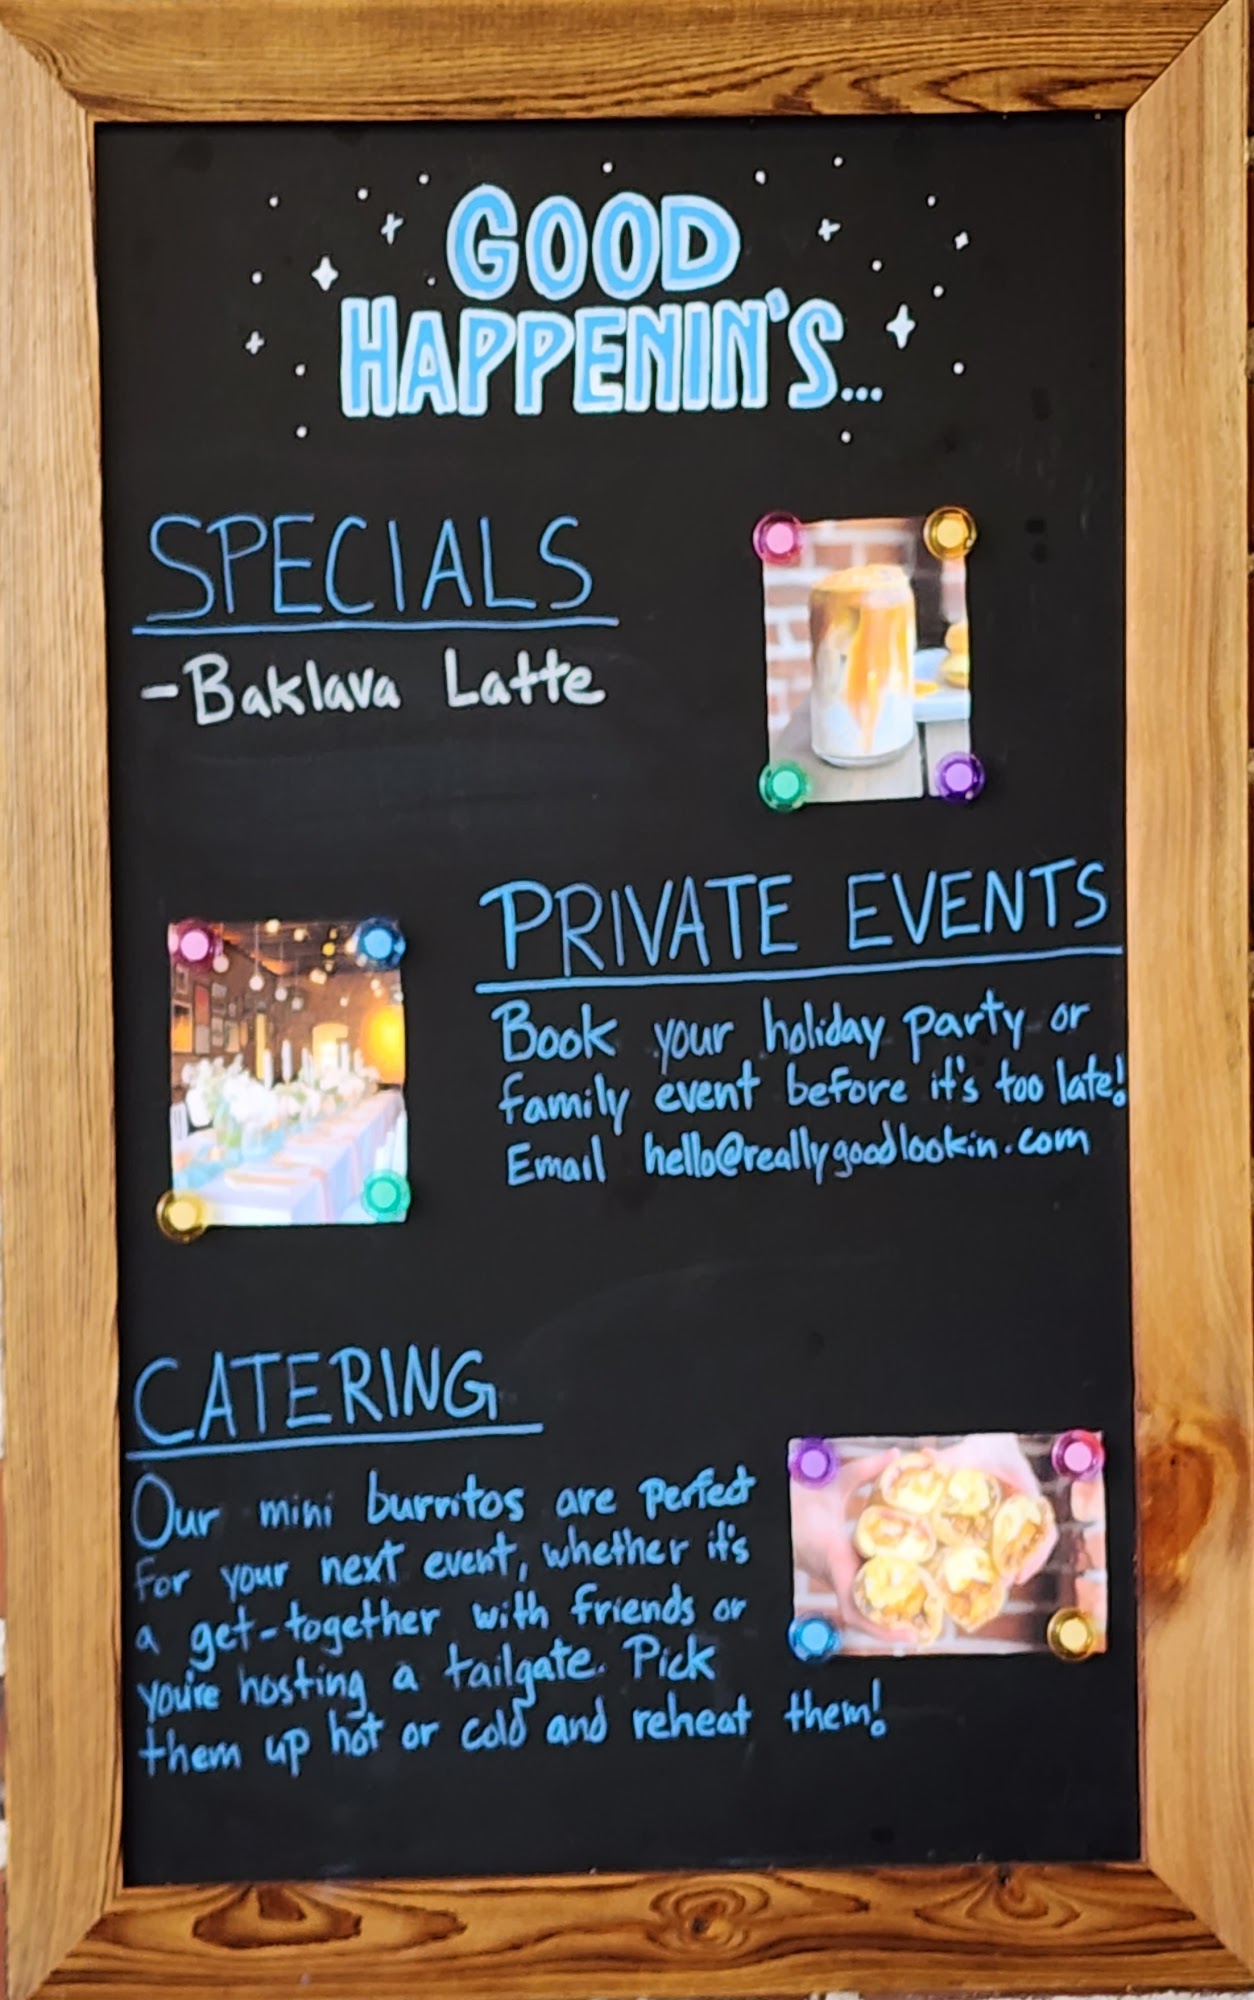 GOOD
HAPPENIN'S...
SPECIALS
- Baklava Latte
PRIVATE EVENTS
Book your holiday party or
family event before it's too late!
Email hello@reallygoodlookin.com
CATERING
Our mini burritos are perfect
for your next event, whether it's
a get-together with friends or
you're hosting a tailgate. Pick
them up hot or cold and reheat them!